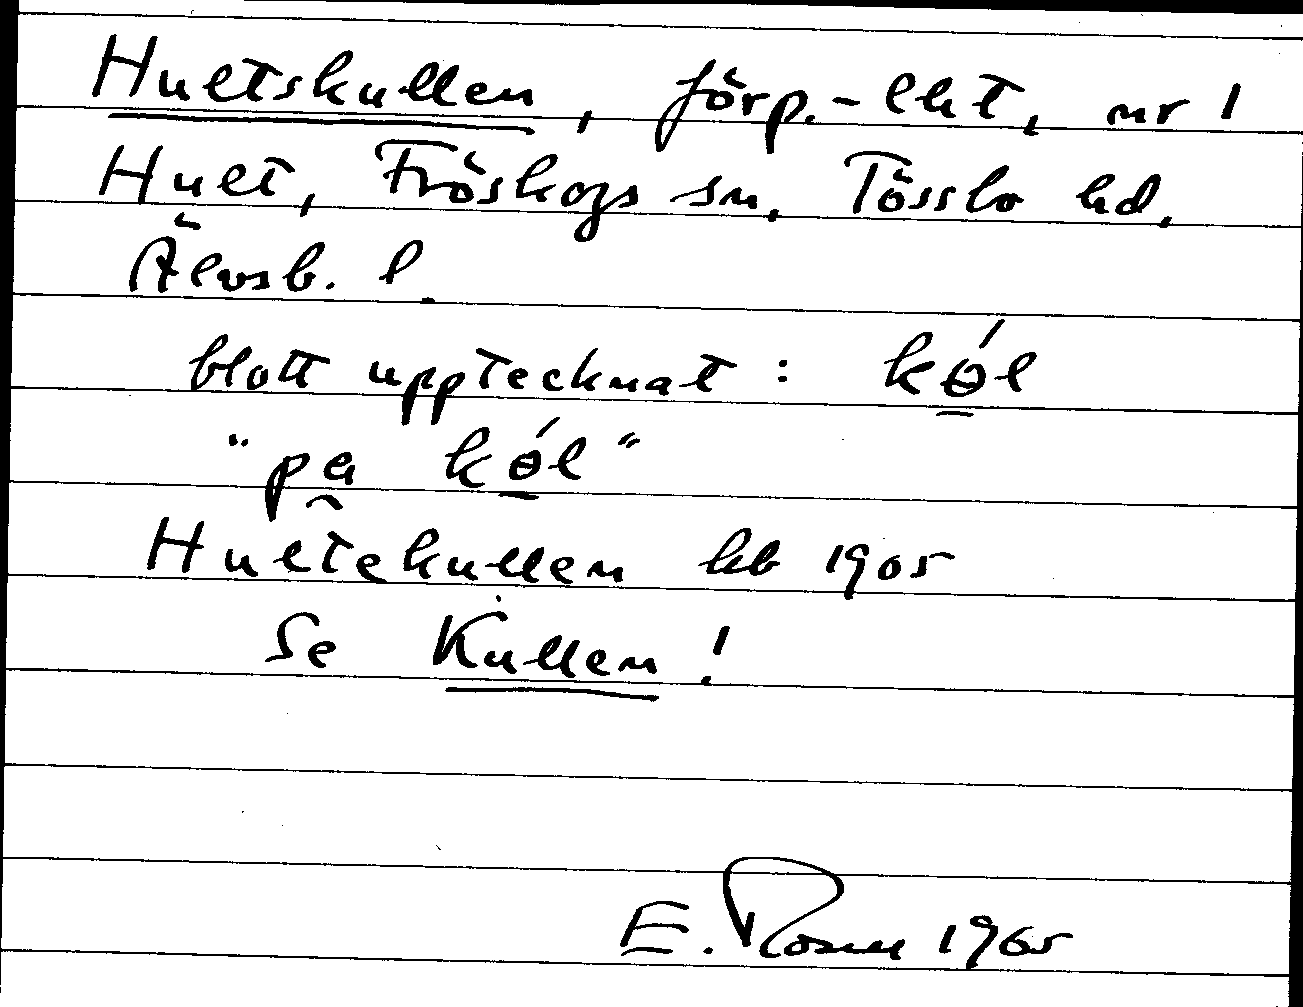 Hultskullen, förp.-lht, nr 1
Hult, Fröskogs sn, Tössbo hd,
Älvsb. l.
blott upptecknat: kɵ́l
"pa kɵ́l"
Hultekullen kb 1905
Se Kullen!
E. Rosell 1965